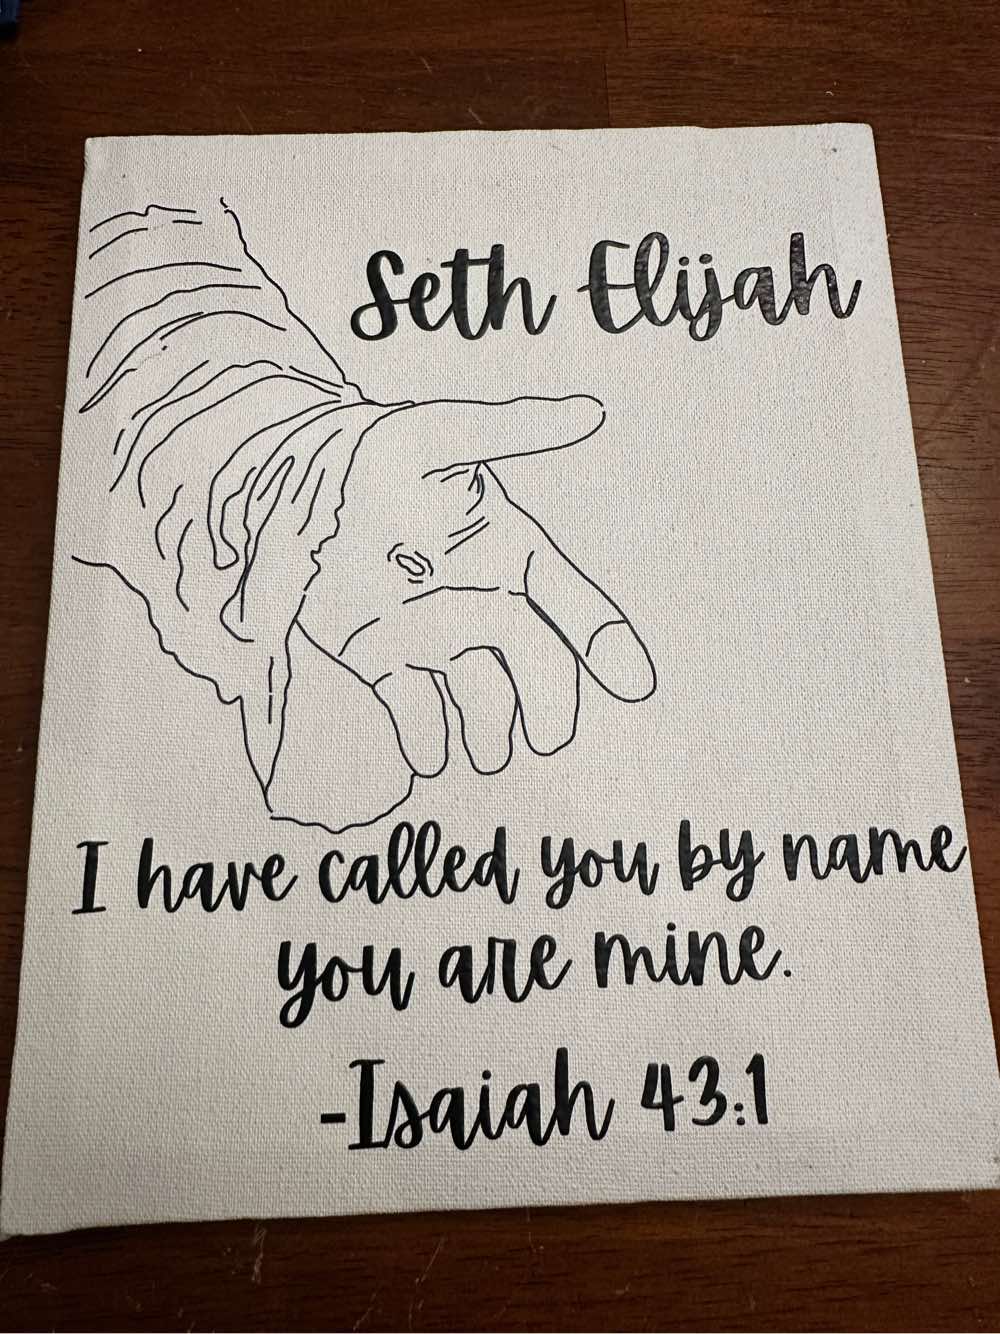 Seth Elijah
I have called you by name
you are mine.
-Isaiah 43:1